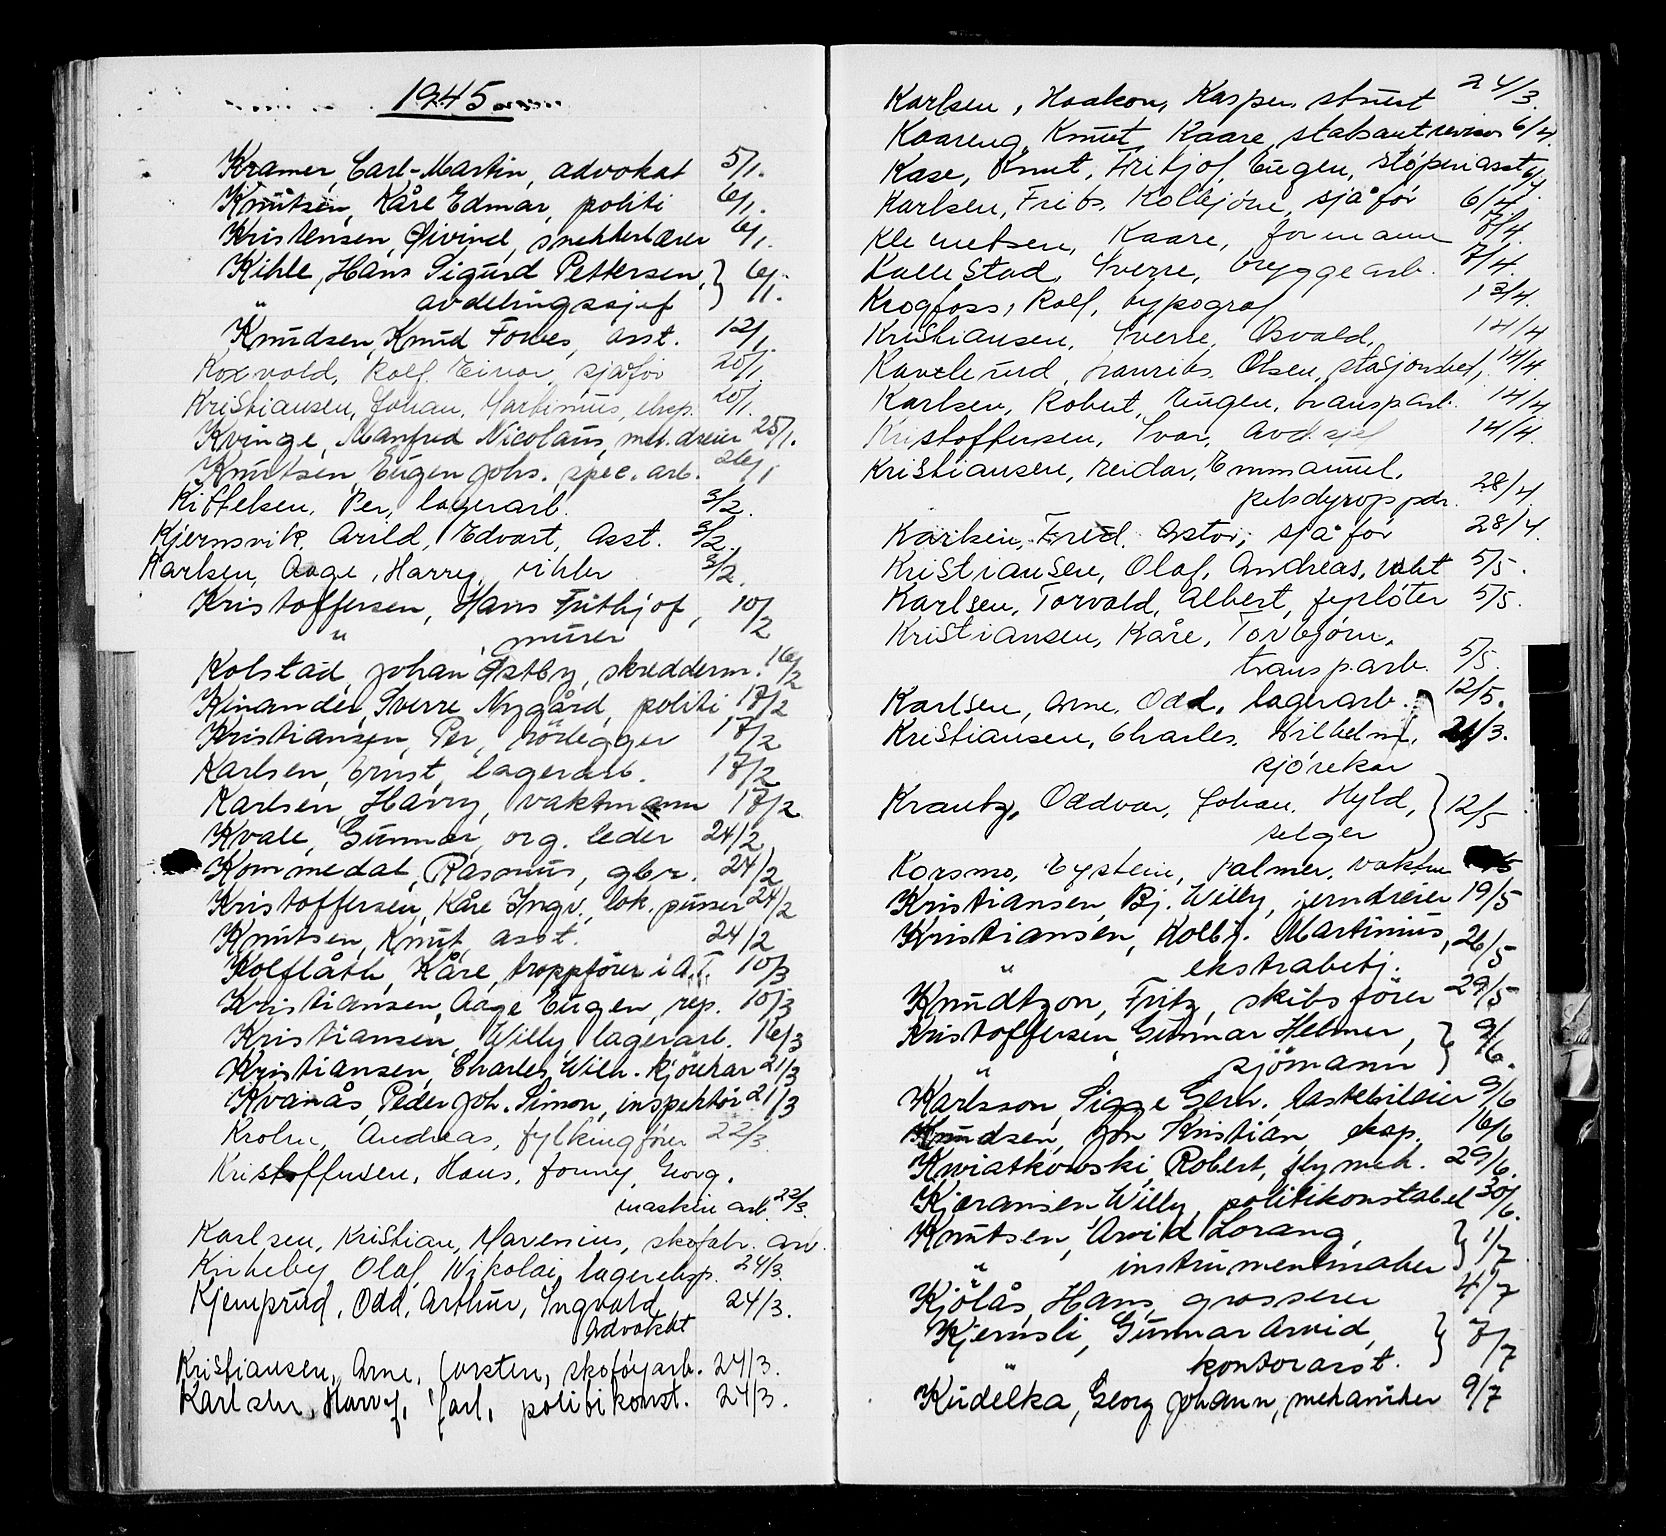 1945
Kramer, Carl-Martin, advokat 5/1.
Knutsen, Kåre Edmar, politi 6/1.
Kristensen, Øivind, snekkerlærer 6/1.
Kihle, Hans Sigurd Pettersen, } 6/1.
" avdelingssjef
Knudsen, Knud Forbes, asst. 12/1.
Roxvold, Rolf. Einar, sjåfør 20/1.
Kristiansen, Johan, Martinius, eksp. 20/1.
Kvinge, Manfred Nicolaus, met.dreier 25/1.
Knutsen, Eugen Johs. spec. arb. 26/1
Kittelsen, Per, lagerarb. 3/2.
Kjernsvik, Arild, Edvart, Asst. 3/2.
Karlsen, Aage, Harry, 3/2.
Kristoffersen, Hans Frithjof, 10/2
" murer
Kolstad, Johan Østby, skredderm. 16/2
Kinander, Sverre Nygård, politi 17/2
Kristiansen, Per, rörlegger 17/2
Karlsen, Ernst, lagerarb. 17/2
Karlsen, Harry, vaktmann 17/2
Kvale, Gunnar, org. leder 24/2
Kommedal, Rasmus, gbr. 24/2
Kristoffersen, Kåre Ingv., lok. pusser 24/2
Knutsen, Knut, asst. 24/2
Kolflåth, Kåre, troppförer i A.T. 10/3
Kristiansen, Aage Eugen, rep. 10/3
Kristiansen, Willy, lagerarb. 16/3
Kristiansen, Charles Wilh. kjörekar 21/3
Kvanås, Peder Joh. Simon, inspektör 21/3
Krohn, Andreas, fylkingfører 22/3.
Kristoffersen, Hans, Jonny, Georg,
maskin arb. 22/3.
Karlsen, Kristian, Marenius, skofabr. arb.
Kirkeby, Olaf, Nikolai, lagereksp. 24/3.
Kjemprud, Odd, Arthur, Ingvald, 24/3.
Advokat
Kristiansen, Arne, Torsten, skotøyarb. 24/3.
Karlsen, Harry, Carl, politikonst. 24/3.
Karlsen, Haakon, Kasper, 24/3.
Kaareng, Knut, Kaare, statsaut revisor 6/4.
Kase, Knut, Fritjof, Eugen, støperiasst 6/4
Karlsen, Frits, Kolbjørn, sjåfør 6/4
Klemetsen, Kaare, formann 7/4.
Kallestad, Sverre, bryggearb. 7/4.
Krogfoss, Rolf, typograf 13/4.
Kristiansen, Sverre, Osvald, 14/4
Kavelund, Laurits, Olsen, stasjonsbetj, 14/4.
Karlsen, Robert, Eugen, transp.arb. 14/4
Kristoffersen, Ivar, Avd.sjef 14/4.
Kristiansen, Reidar, Emmanuel,
pelsdyropdr. 28/4
Karlsen, Fred. Astor, sjåfør 28/4.
Kristiansen, Olaf, Andreas, vakt 5/5.
Karlsen, Torvald, Albert, fyrbøter 5/5.
Kristiansen, Kåre, Torbjørn,
transp.arb. 5/5.
Karlsen, Arne. Odd, lagerarb. 12/5.
Kristiansen, Charles, Wilhelm, 21/3.
kjørekar
Krantz, Oddvar, Johan, Hyld, } 12/5
selger
Korsmo, Eystein, Palmer, vaktm
Kristiansen, Bj. Willy, jerndreier 19/5
Kristiansen, Kolbj. Martinius, 26/5
" ekstrabetj.
Knudtzon, Fritz, skibsförer 29/5
Kristoffersen, Gunnar Helmer, } 9/6.
" sjömann
Karlsson, Sigge Gerh. lastebileier 9/6
Knudsen, Jon Kristian, eksp. 16/6
Kwiatkowski, Robert, flymek. 29/6.
Kjæransen Willy, politikonstabel 30/6.
Knutsen, Arvid Lorang, } 1/7
" instrumentmaker
Kjölås, Hans, grosserer 4/7
Kjernsli, Gunnar Arvid, } 7/7
" kontorasst.
Kudelka, Georg Johann, mekaniker 9/7